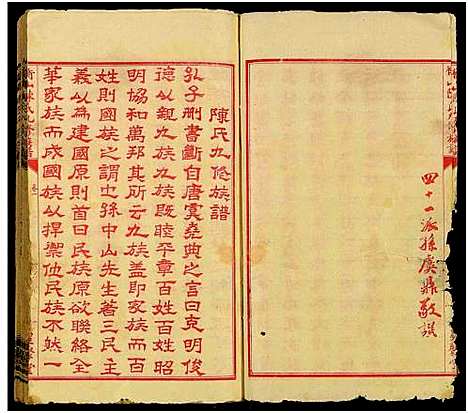 四十一派孫虞鼎敬撰
陳氏九修族譜
孔子刪書斷自唐虞堯典之言曰克明俊
德以親九族九族既睦平章百姓百姓昭
明協和萬邦其所云九族蓋即家族而百
姓則國族之謂也孫中山先生著三民主
義以為建國原則首曰民族原欲聯絡全
華家族而成國族以捍禦他民族不然一